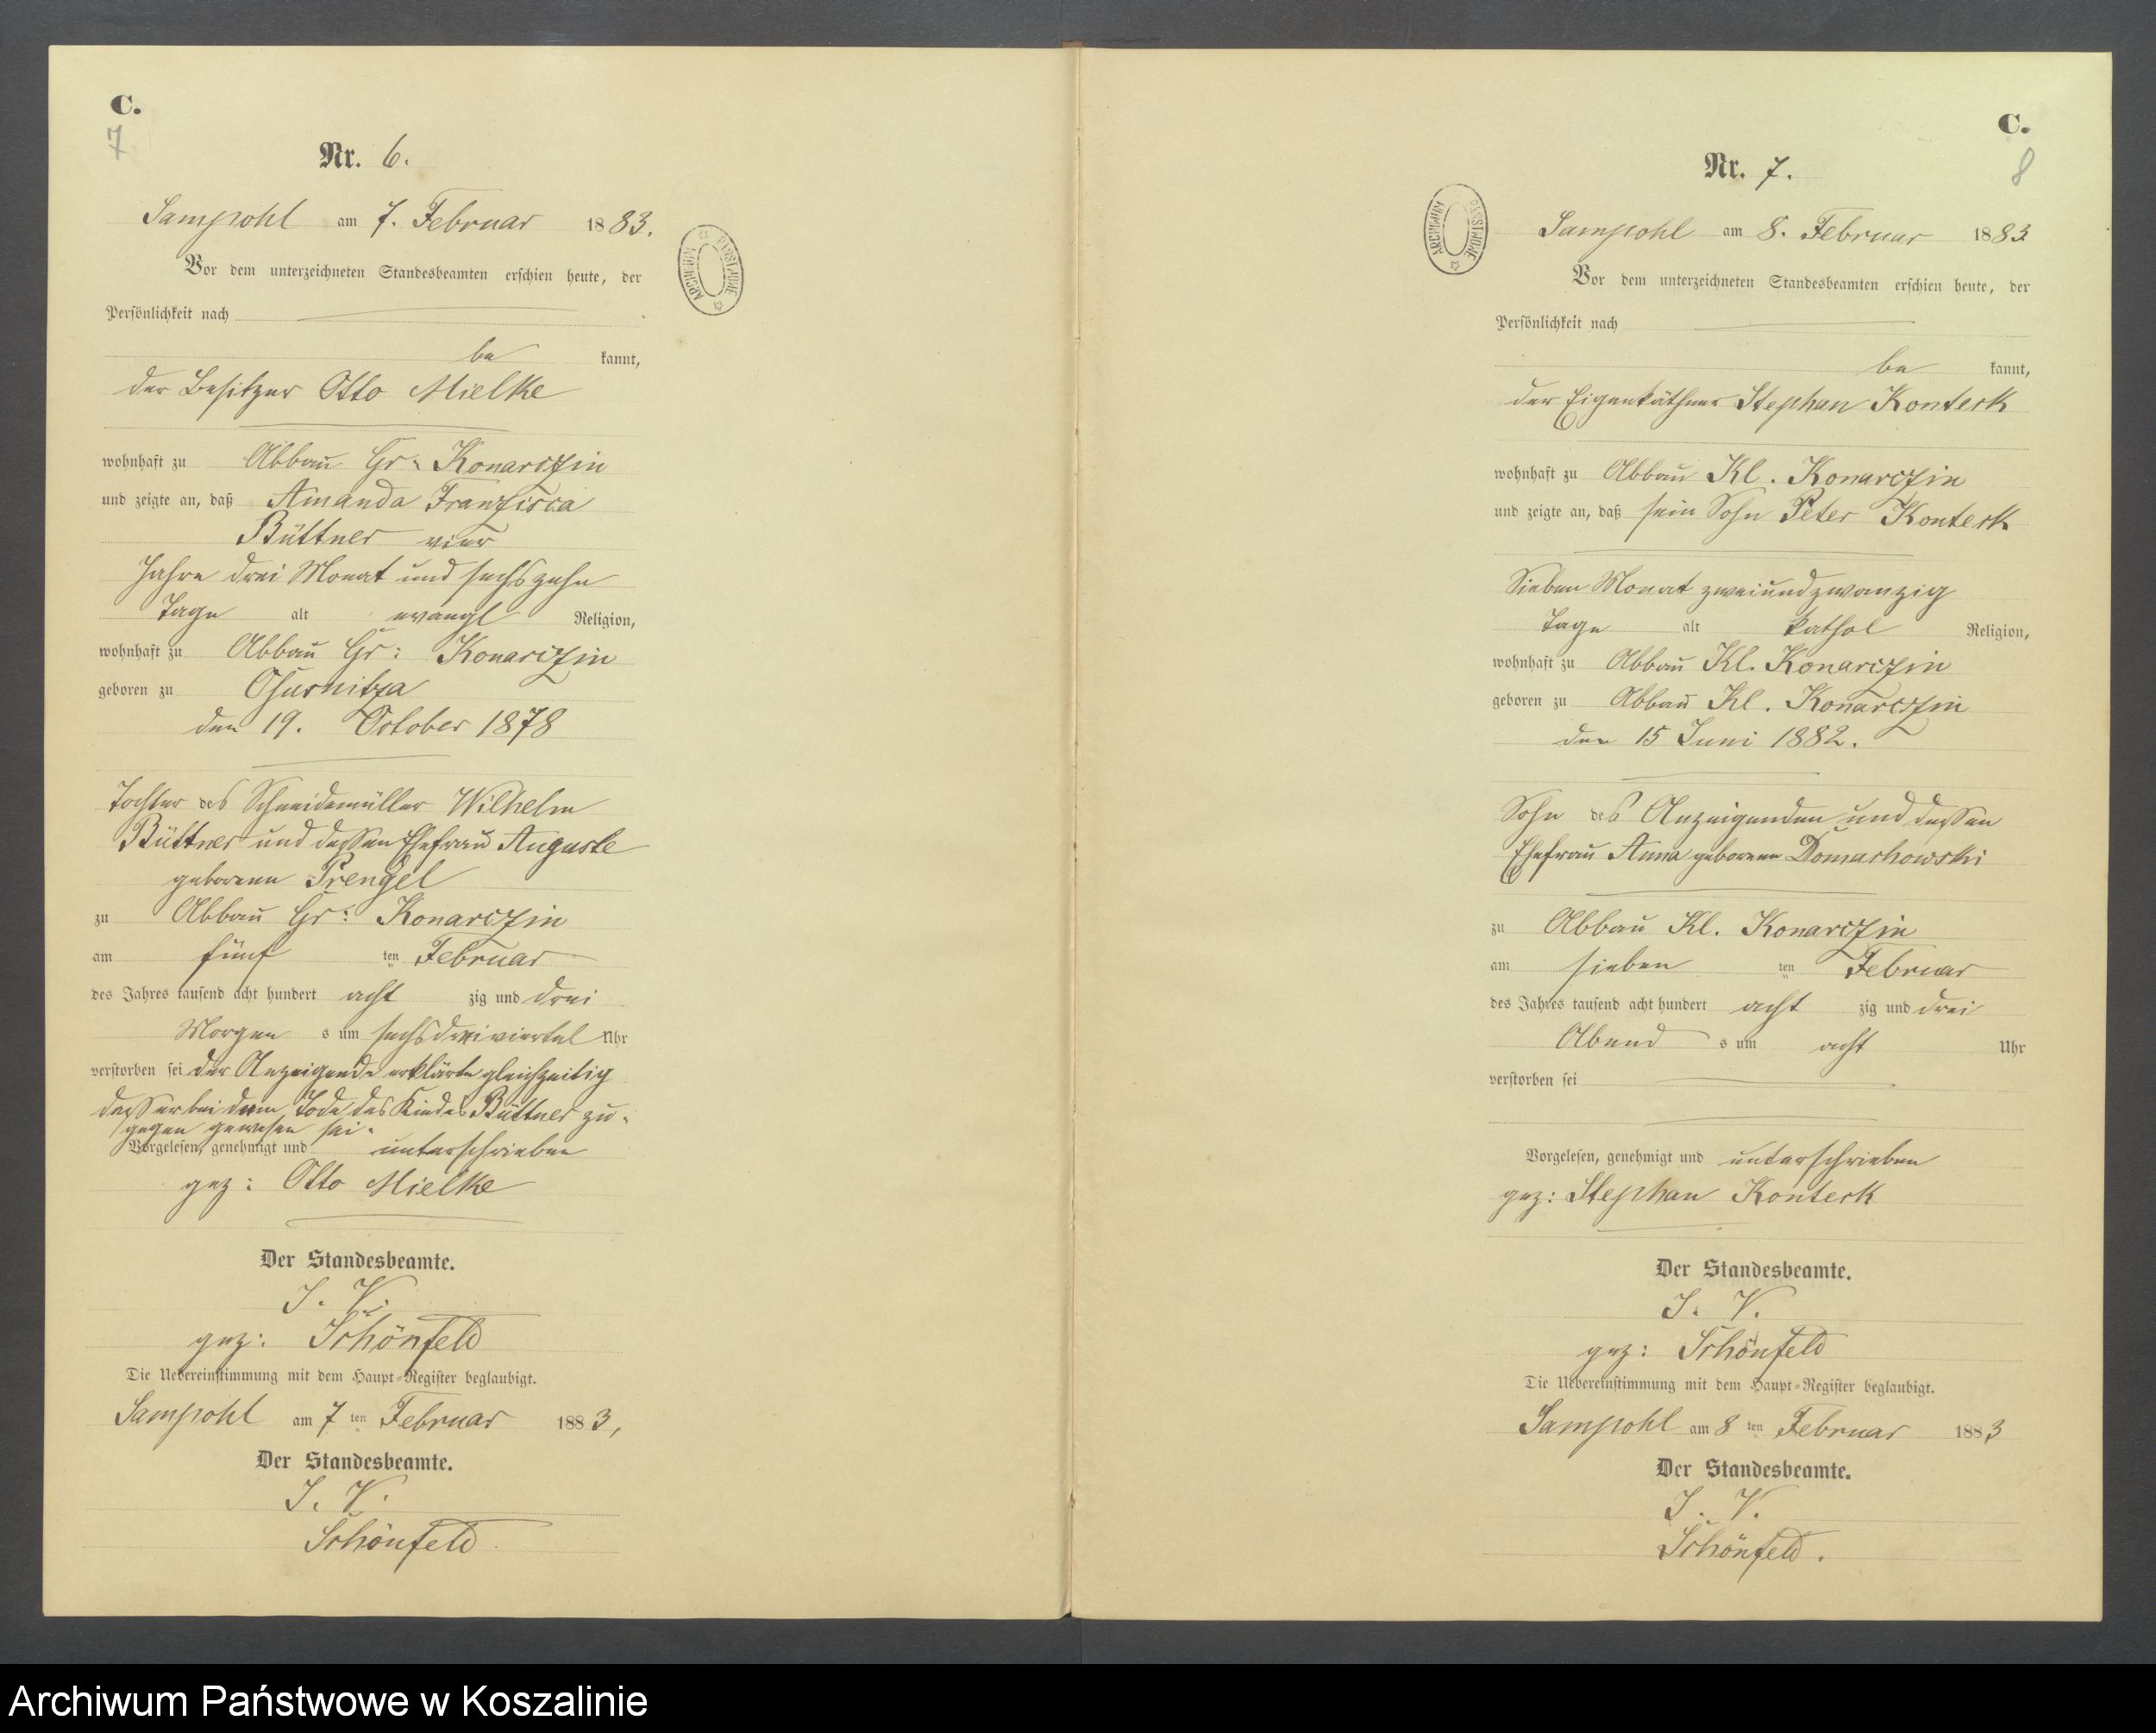 C.
7
Nr. 6.
Sampohl am 7. Februar 1883.
Vor dem unterzeichneten Standesbeamten erschien heute, der
Persönlichkeit nach
be kannt,
der Besitzer Otto Mielke
wohnhaft zu Abbau Gr. Konarczin
und zeigte an, daß Amanda Franzisca
Büttner vier
Jahre drei Monat und sechszehn
Tage alt evangl Religion,
wohnhaft zu Abbau Gr: Konarczin
geboren zu Osusnitza
den 19. October 1878
Tochter des Schneidemüller Wilhelm
Büttner und dessen Ehefrau Auguste
geborenen Prengel
zu Abbau Gr: Konarczin
am fünf ten Februar
des Jahres tausend acht hundert acht zig und drei
Morgen s um sechsdreiviertel Uhr
verstorben sei der Anzeigende erklärte gleichzeitig
dass er bei dem Tode des Kindes Büttner zu-
gegen gewesen sei.
Vorgelesen, genehmigt und unterschrieben
gez: Otto Mielke
Der Standesbeamte.
I. V.
gez: Schönfeld
Die Uebereinstimmung mit dem Haupt-Register beglaubigt.
Sampohl am 7 ten Februar 1883,
Der Standesbeamte.
I. V.
Schönfeld
ARCHIWUM PAŃSTWOWE
C.
8
Nr. 7.
ARCHIWUM PAŃSTWOWE
Sampohl am 8. Februar 1883
Vor dem unterzeichneten Standesbeamten erschien heute, der
Persönlichkeit nach
be kannt,
der Eigenkäthner Stephan Konteck
wohnhaft zu Abbau Kl. Konarczin
und zeigte an, daß sein Sohn Peter Konteck
Sieben Monat zweiundzwanzig
Tage alt kathol Religion,
wohnhaft zu Abbau Kl. Konarczin
geboren zu Abbau Kl. Konarczin
den 15 Juni 1882.
Sohn des Anzeigenden und dessen
Ehefrau Anna geborenen Domachowski
zu Abbau Kl. Konarczin
am sieben ten Februar
des Jahres tausend acht hundert acht zig und drei
Abend s um acht Uhr
verstorben sei
Vorgelesen, genehmigt und unterschrieben
gez: Stephan Konteck
Der Standesbeamte.
I. V.
gez: Schönfeld
Die Uebereinstimmung mit dem Haupt-Register beglaubigt.
Sampohl am 8 ten Februar 1883
Der Standesbeamte.
I. V.
Schönfeld.
Archiwum Państwowe w Koszalinie